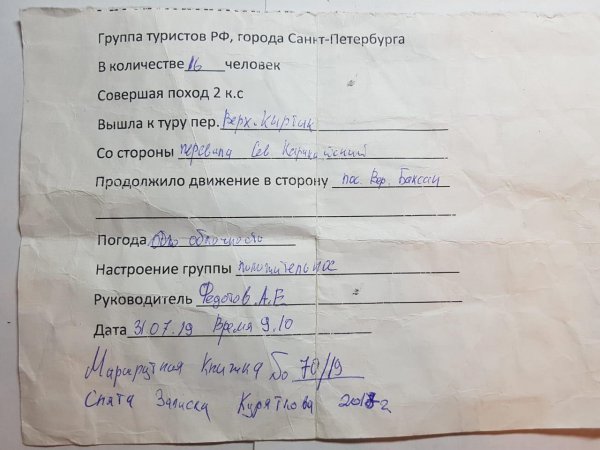 Группа туристов РФ, города Санкт-Петербурга
В количестве 16 человек
Совершая поход 2 к.с
Вышла к туру пер. Верх. Киртик
Со стороны перевала Сев. Каракайский
Продолжило движение в сторону пос. Вер. Баксан
Погода облачность
Настроение группы положительное
Руководитель Федотов А.Е
Дата 31 07.19 Время 9.10
Маршрутная книжка № 70/19
Снята Записка г